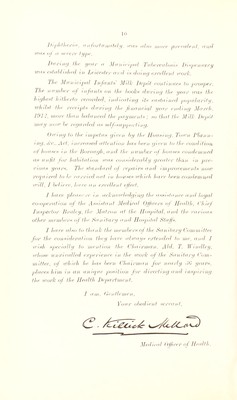 10
Diphtheria, unfortunately, was also more prevalent and
was of a severe type.
During the year a Municipal Tuberculosis Dispensary
was established in Leicester and is doing excellent work.
The Municipal Infants' Milk Depôt continues to prosper.
The number of infants on the books during the year was the
highest hitherto recorded, indicating its sustained popularity,
whilst the receipts during the financial year ending March,
1912, more than balanced the payments; so that the Milk Depôt
may now be regarded as self-supporting.
Owing to the impetus given by the Housing, Town Plann-
ing, &c. Act, increased attention has been given to the condition
of houses in the Borough, and the number of houses condemned
as unfit for habitation was considerably greater than in pre-
vious years. The standard of repairs and improvements now
required to be carried out in houses which have been condemned
will, I believe, have an excellent effect.
I have pleasure in acknowledging the assistance and loyal
co-operation of the Assistant Medical Officers of Health, Chief
Inspector Braley, the Matron of the Hospital, and the various
other members of the Sanitary and Hospital Staffs.
I have also to thank the members of the Sanitary Committee
for the consideration they have always extended to me, and I
wish specially to mention the Chairman, Ald. T. Windley,
whose unrivalled experience in the work of the Sanitary Com-
mittee, of which he has been Chairman for nearly 36 years,
places him in an unique position for directing and inspiring
the work of the Health Department.
I am, Gentlemen,
Your obedient servant,
C. Killick Millard
Medical Officer of Health.